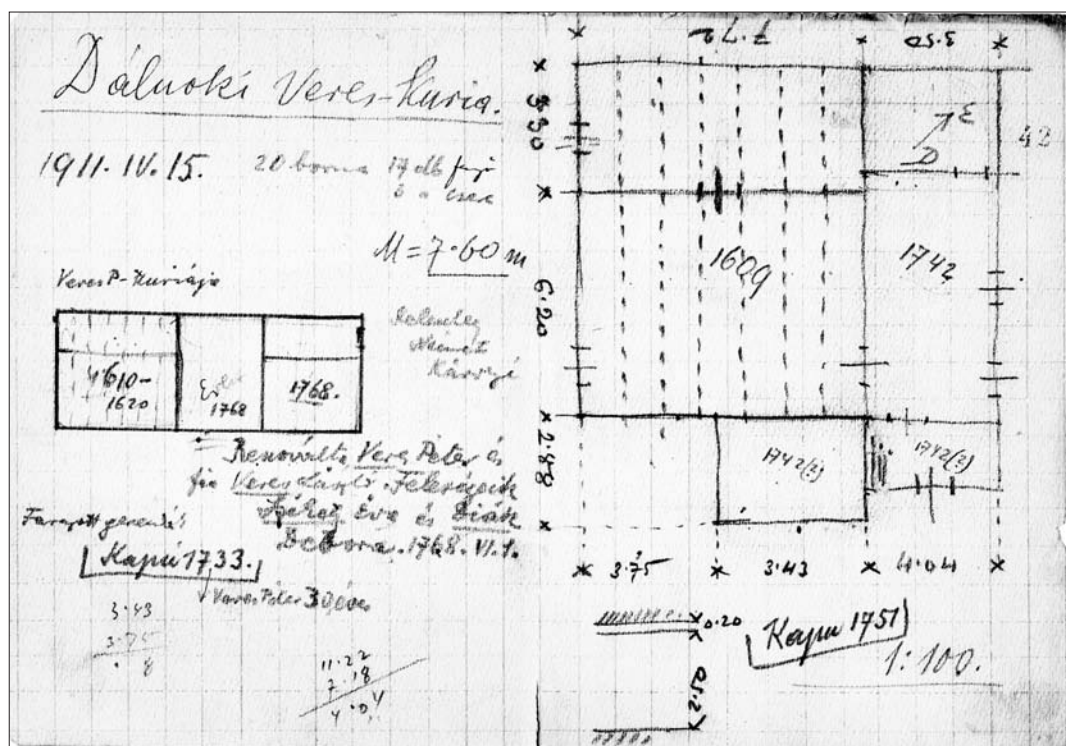 Dálnoki Veres-kuria.
1911. IV. 15.
20 borona 17 db fej
3 " csere
M = 7·60 m
Veres P-kuriája
Jelenleg
Német
Károlyé
1610-
1620
1768
1768.
Renoválta Veres Péter és
fia Veres László. Feleségeik
Székely Éva és Diák
Debora. 1768. VI. 1.
Faragott gerendás
Kapu 1733.
Veres Péter 30 éves
3·43
3·75
8
11·22
7·18
4·04
7·72
3·50
3·30
É
D
42
1609
1742
6·20
2·88
1742(?)
1742(?)
3·75
3·43
4·04
0·20
2·50
Kapu 1751
1:100.